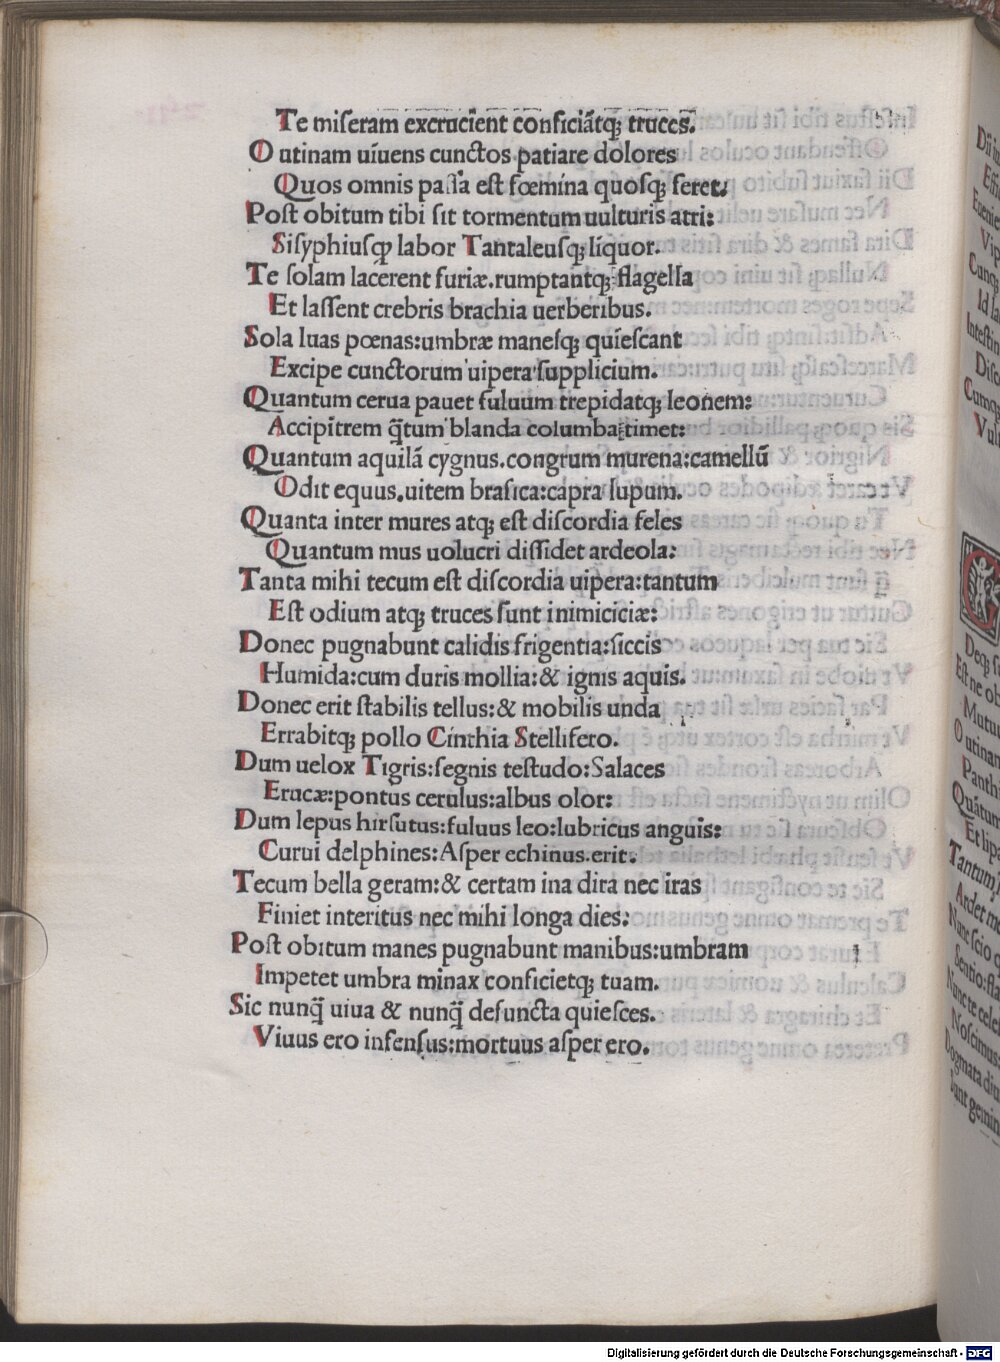 Te miseram excrucient conficiãtq; truces.
O utinam uiuens cunctos patiare dolores
Quos omnis passa est fœmina quosq; feret.
Post obitum tibi sit tormentum uulturis atri:
Sisyphiusq; labor Tantaleusq; liquor.
Te solam lacerent furiæ. rumptantq; flagella
Et lassent crebris brachia uerberibus.
Sola luas pœnas: umbræ manesq; quiescant
Excipe cunctorum uipera supplicium.
Quantum cerua pauet fuluum trepidatq; leonem:
Accipitrem q̃tum blanda columba timet:
Quantum aquilã cygnus. congrum murena: camellũ
Odit equus, uitem brasica: capra lupum.
Quanta inter mures atq; est discordia feles
Quantum mus uolucri dissidet ardeola:
Tanta mihi tecum est discordia uipera: tantum
Est odium atq; truces sunt inimiciciæ:
Donec pugnabunt calidis frigentia: siccis
Humida: cum duris mollia: & ignis aquis.
Donec erit stabilis tellus: & mobilis unda
Errabitq; pollo Cinthia Stellifero.
Dum uelox Tigris: segnis testudo: Salaces
Erucæ: pontus cerulus: albus olor:
Dum lepus hirsutus: fuluus leo: lubricus anguis:
Curui delphines: Asper echinus. erit.
Tecum bella geram: & certam ina dira nec iras
Finiet interitus nec mihi longa dies:
Post obitum manes pugnabunt manibus: umbram
Impetet umbra minax conficietq; tuam.
Sic nunq̃ uiua & nunq̃ defuncta quiesces.
Viuus ero infensus: mortuus asper ero.
Digitalisierung gefördert durch die Deutsche Forschungsgemeinschaft - DFG